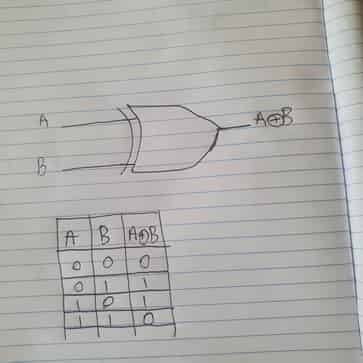 A
A⊕B
B
A B A⊕B
0 0 0
0 1 1
1 0 1
1 1 0